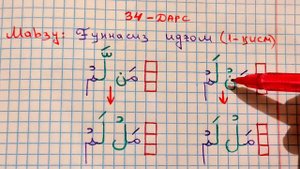 34-ДАРС
Мавзу: Ғуннасиз идғом (1-қисм)
مَنْ لَمْ مَن لَّمْ
مَلْ لَمْ مَلْ لَمْ